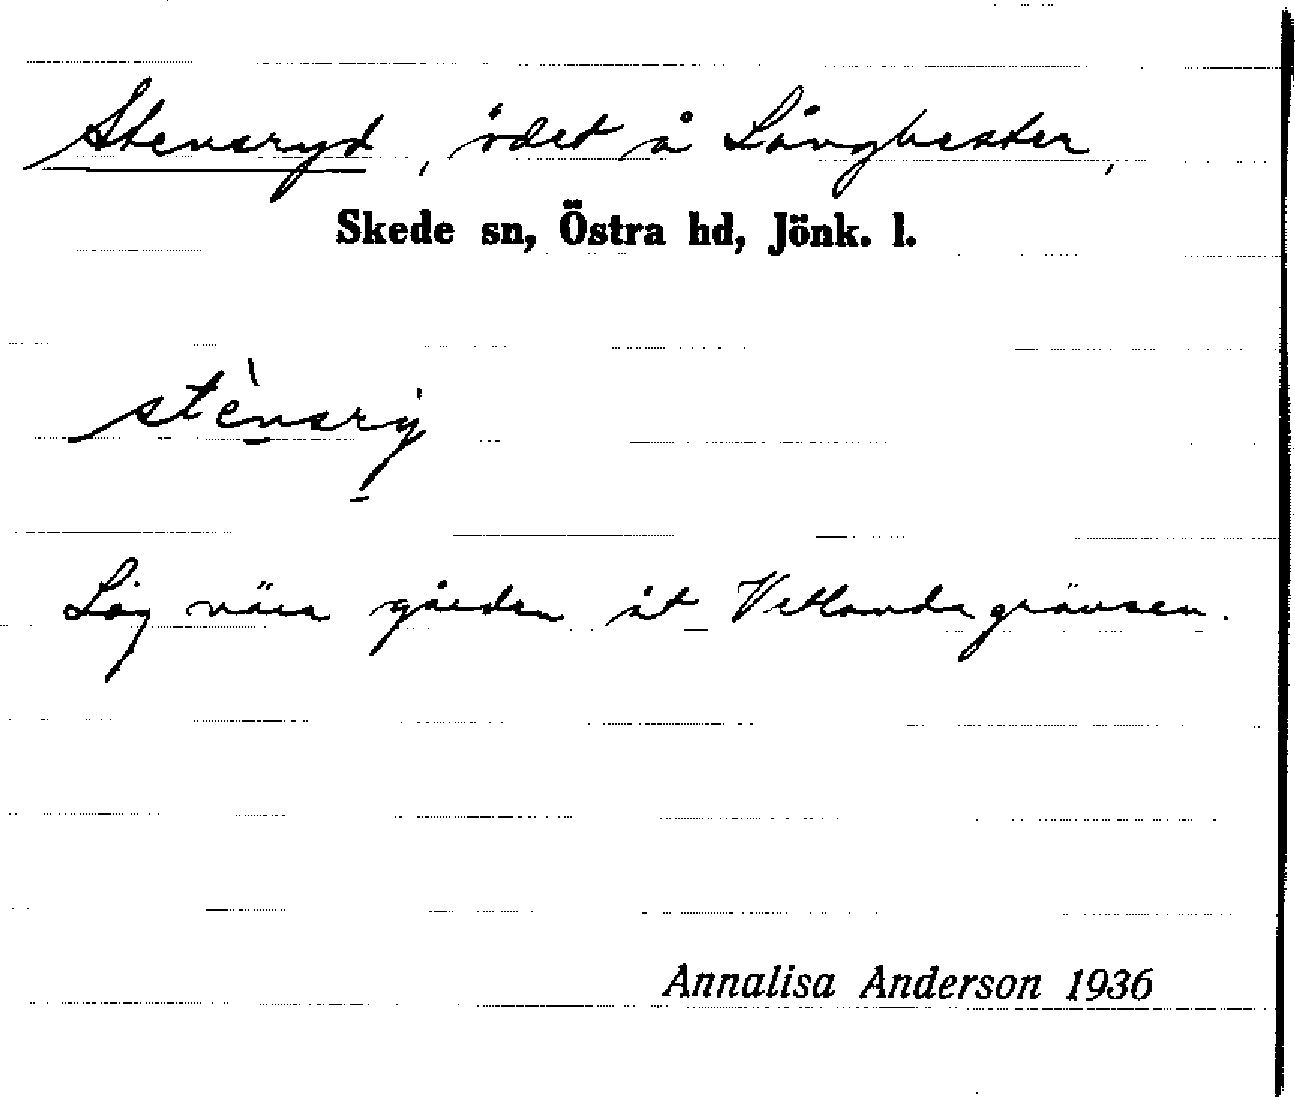 Stensryd, ödet å Långhester,
Skede sn, Östra hd, Jönk. l.
stènsrÿ
Låg nära gården åt Vetlandagränsen.
Annalisa Anderson 1936